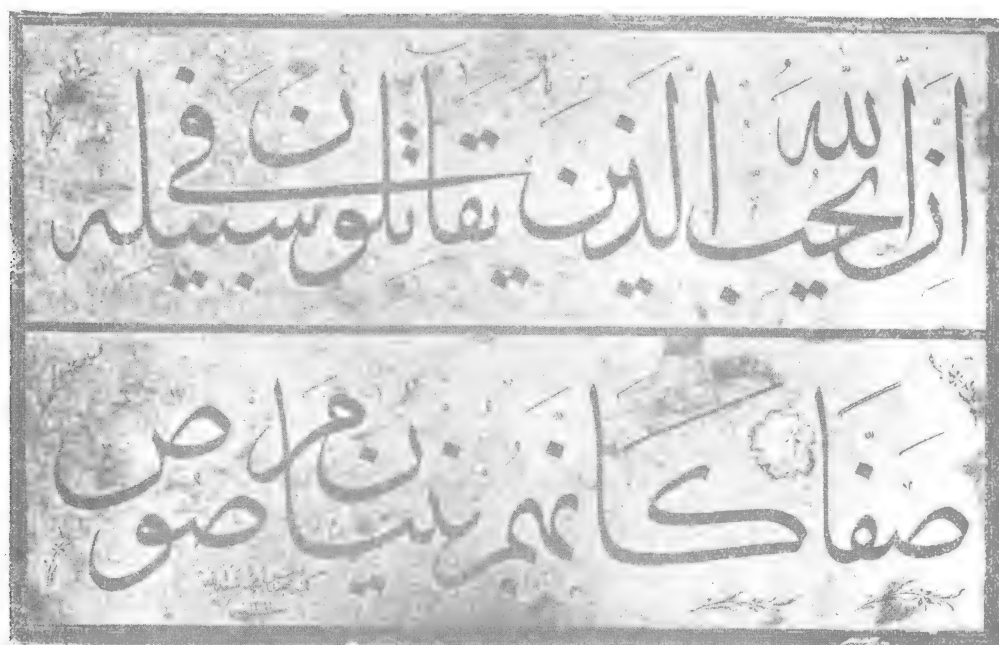 اِنَّ اللّٰهَ يُحِبُّ الَّذِينَ يُقَاتِلُونَ فِي سَبِيلِهِ
صَفًّا كَاَنَّهُمْ بُنْيَانٌ مَرْصُوصٌ